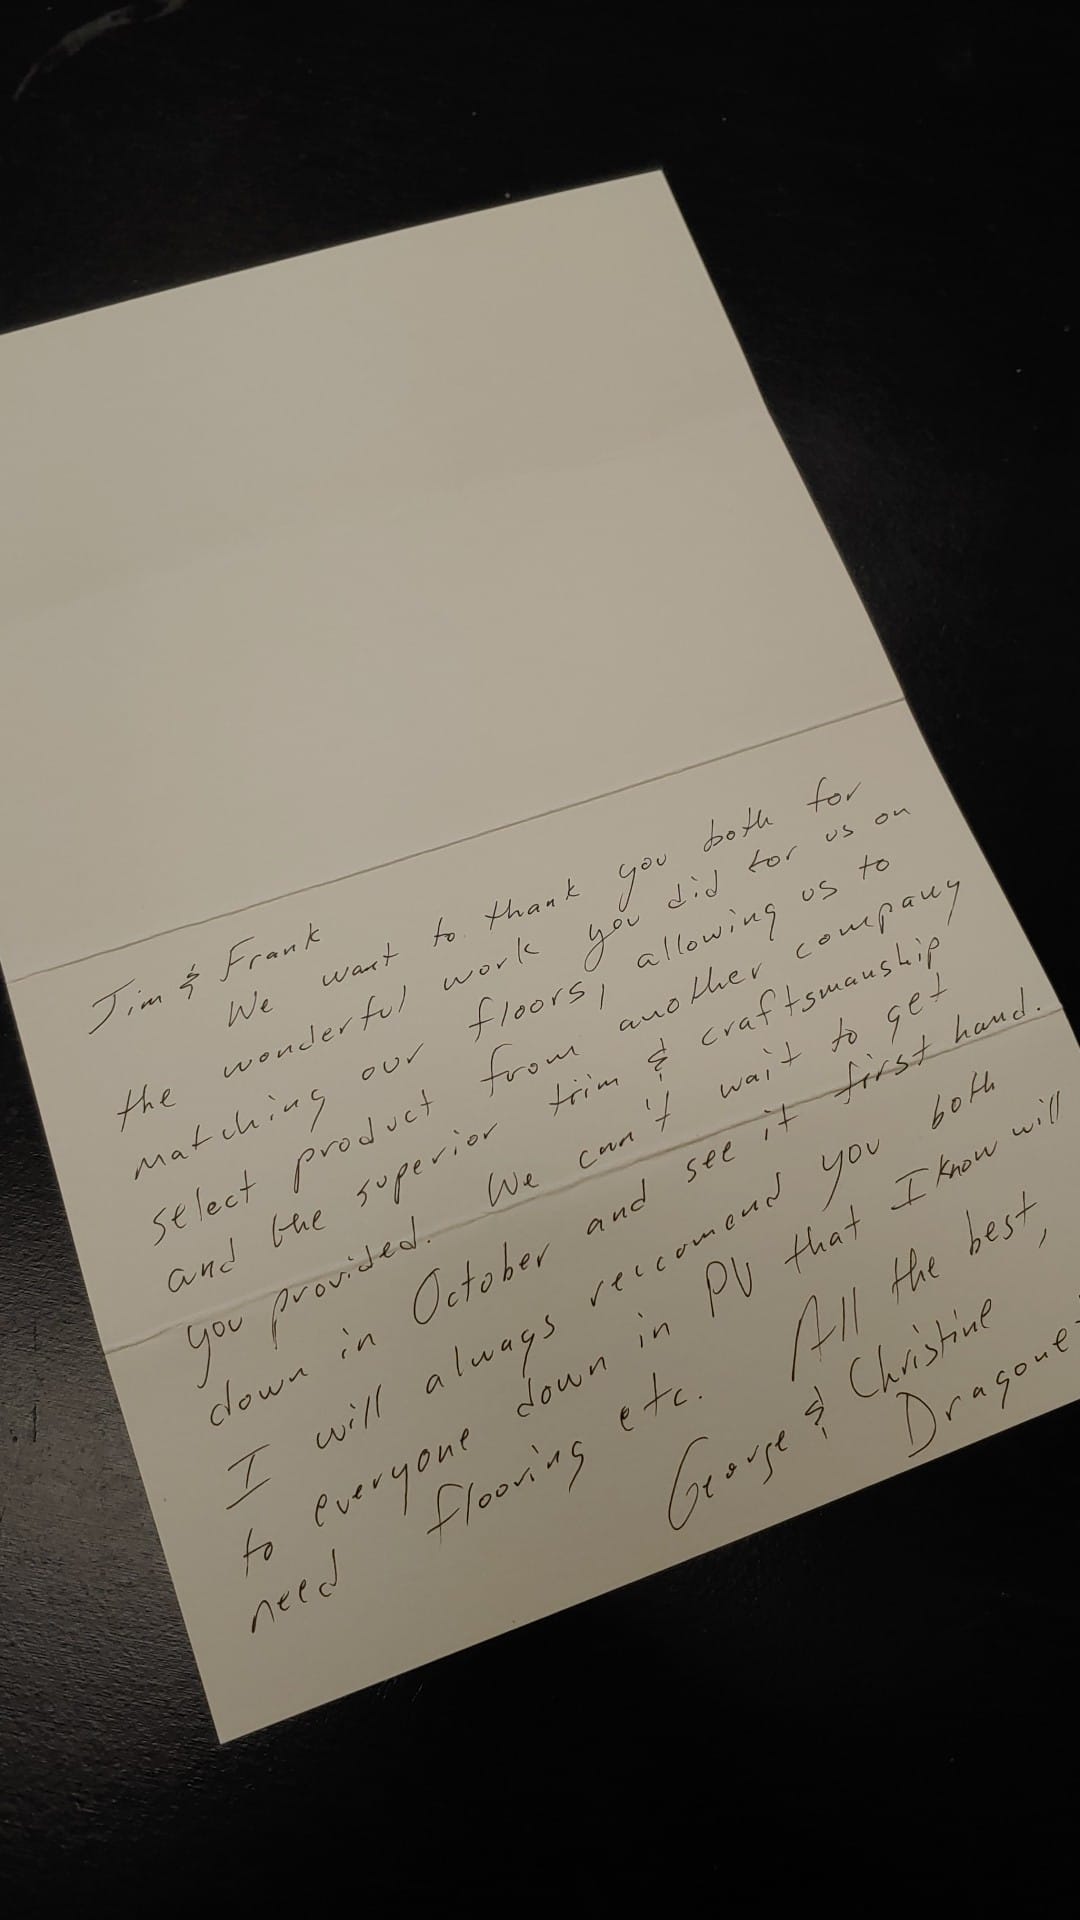 Jim & Frank
We want to thank you both for
the wonderful work you did for us on
matching our floors, allowing us to
select product from another company
and the superior trim & craftsmanship
you provided. We can't wait to get
down in October and see it first hand.
I will always reccomend you both
to everyone down in PV that I know will
need flooring etc. All the best,
George & Christine